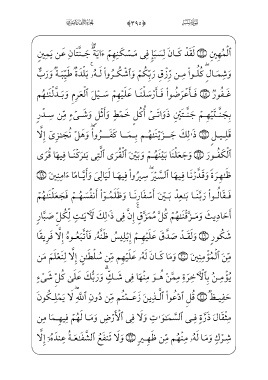 ٣٩٥
ٱلْمُهِينِ ۝ لَقَدْ كَانَ لِسَبَإٍ فِى مَسْكَنِهِمْ ءَايَةٌ جَنَّتَانِ عَن يَمِينٍ
وَشِمَالٍ كُلُوا۟ مِن رِّزْقِ رَبِّكُمْ وَٱشْكُرُوا۟ لَهُۥ بَلْدَةٌ طَيِّبَةٌ وَرَبٌّ
غَفُورٌ ۝ فَأَعْرَضُوا۟ فَأَرْسَلْنَا عَلَيْهِمْ سَيْلَ ٱلْعَرِمِ وَبَدَّلْنَٰهُم
بِجَنَّتَيْهِمْ جَنَّتَيْنِ ذَوَاتَىْ أُكُلٍ خَمْطٍ وَأَثْلٍ وَشَىْءٍ مِّن سِدْرٍ
قَلِيلٍ ۝ ذَٰلِكَ جَزَيْنَٰهُم بِمَا كَفَرُوا۟ وَهَلْ نُجَٰزِىٓ إِلَّا
ٱلْكَفُورَ ۝ وَجَعَلْنَا بَيْنَهُمْ وَبَيْنَ ٱلْقُرَى ٱلَّتِى بَٰرَكْنَا فِيهَا قُرًى
ظَٰهِرَةً وَقَدَّرْنَا فِيهَا ٱلسَّيْرَ سِيرُوا۟ فِيهَا لَيَالِىَ وَأَيَّامًا ءَامِنِينَ ۝
فَقَالُوا۟ رَبَّنَا بَٰعِدْ بَيْنَ أَسْفَارِنَا وَظَلَمُوٓا۟ أَنفُسَهُمْ فَجَعَلْنَٰهُمْ
أَحَادِيثَ وَمَزَّقْنَٰهُمْ كُلَّ مُمَزَّقٍ إِنَّ فِى ذَٰلِكَ لَءَايَٰتٍ لِّكُلِّ صَبَّارٍ
شَكُورٍ ۝ وَلَقَدْ صَدَّقَ عَلَيْهِمْ إِبْلِيسُ ظَنَّهُۥ فَٱتَّبَعُوهُ إِلَّا فَرِيقًا
مِّنَ ٱلْمُؤْمِنِينَ ۝ وَمَا كَانَ لَهُۥ عَلَيْهِم مِّن سُلْطَٰنٍ إِلَّا لِنَعْلَمَ مَن
يُؤْمِنُ بِٱلْءَاخِرَةِ مِمَّنْ هُوَ مِنْهَا فِى شَكٍّ وَرَبُّكَ عَلَىٰ كُلِّ شَىْءٍ
حَفِيظٌ ۝ قُلِ ٱدْعُوا۟ ٱلَّذِينَ زَعَمْتُم مِّن دُونِ ٱللَّهِ لَا يَمْلِكُونَ
مِثْقَالَ ذَرَّةٍ فِى ٱلسَّمَٰوَٰتِ وَلَا فِى ٱلْأَرْضِ وَمَا لَهُمْ فِيهِمَا مِن
شِرْكٍ وَمَا لَهُۥ مِنْهُم مِّن ظَهِيرٍ ۝ وَلَا تَنفَعُ ٱلشَّفَٰعَةُ عِندَهُۥٓ إِلَّا